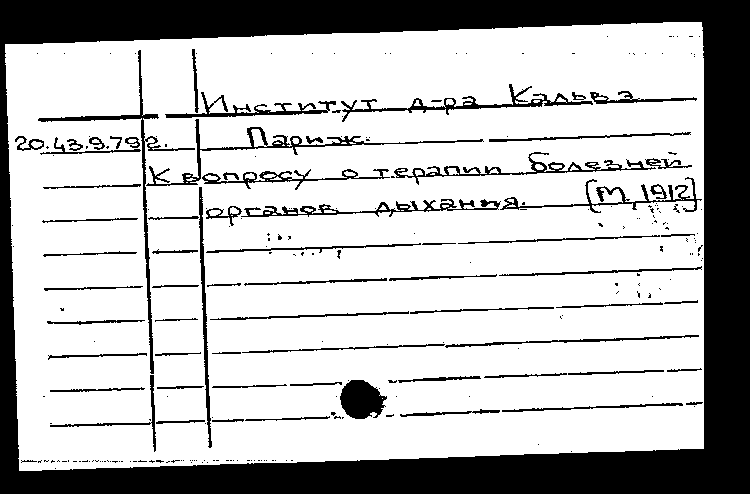 Институт д-ра Кальва
20.43.9.792. Париж.
К вопросу о терапии болезней
органов дыхания. [М, 1912]